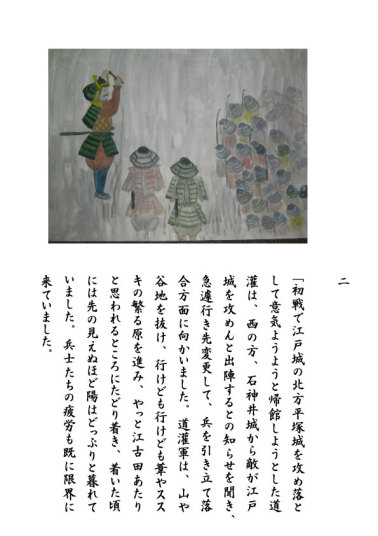 二
「初戦で江戸城の北方平塚城を攻め落と
して意気ようようと帰館しようとした道
灌は、西の方、石神井城から敵が江戸
城を攻めんと出陣するとの知らせを聞き、
急遽行き先変更して、兵を引き立て落
合方面に向かいました。道灌軍は、山や
谷地を抜け、行けども行けども葦やスス
キの繁る原を進み、やっと江古田あたり
と思われるところにたどり着き、着いた頃
には先の見えぬほど陽はどっぷりと暮れて
いました。兵士たちの疲労も既に限界に
来ていました。